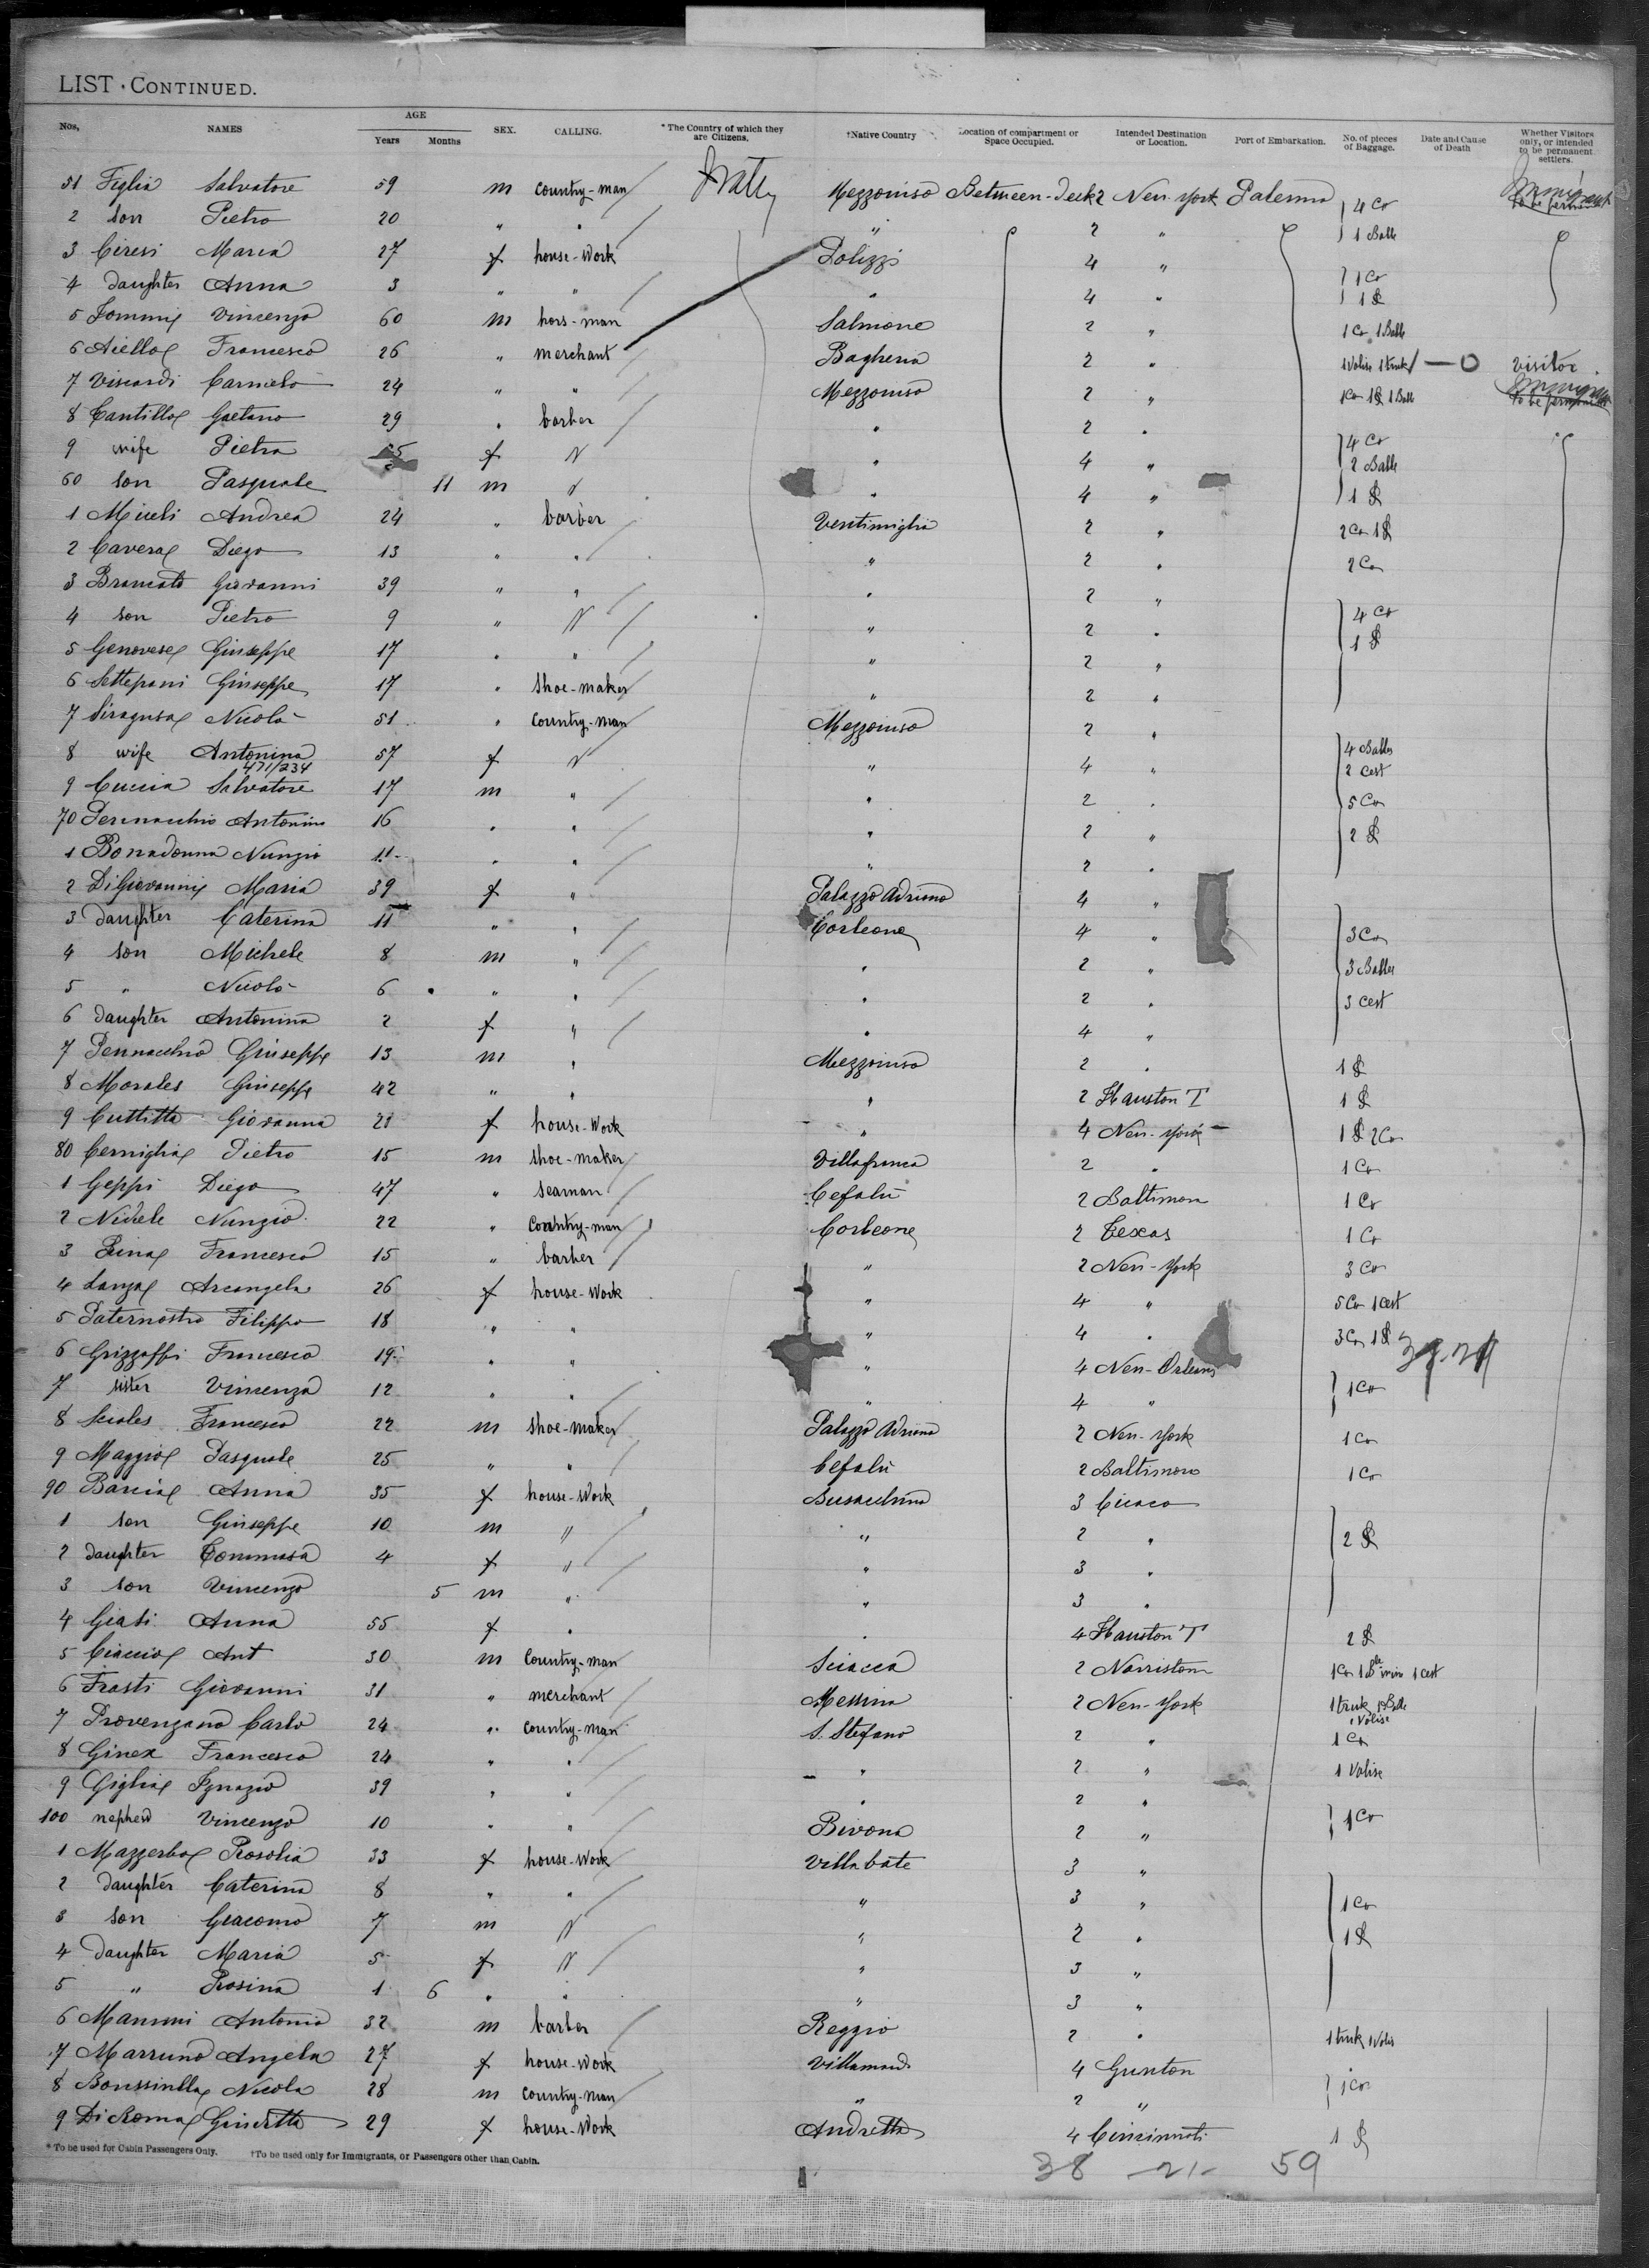 LIST · CONTINUED.
Nos. NAMES AGE Years Months SEX. CALLING. * The Country of which they are Citizens. †Native Country Location of compartment or Space Occupied. Intended Destination or Location. Port of Embarkation. No. of pieces of Baggage. Date and Cause of Death Whether Visitors only, or intended to be permanent settlers.
51 Figlia Salvatore 59 m country-man Italy Mezzoiuso Between-deck 2 New-York Palermo 4 Co
2 son Pietro 20 " " " 2 " 1 Balle
3 Ciresi Maria 27 f house-Work Polizzi 4 " 1 Co
4 daughter Anna 3 " " " 4 " 1 S
5 Vincenzo 60 m hors-man Salmone 2 " 1 Co 1 Balle
6 Aiello Francesco 26 " merchant Bagheria 2 " 1 Valise 1 trunk visitor
7 Viscardi Carmelo 24 " " Mezzoiuso 2 " 1 Co 1 S 1 Balle
8 Cantillo Gaetano 29 " barber " 2 "
9 wife Pietra f N " 4 " 4 Co 2 Balle
60 son Pasquale 11 m N " 4 " 1 S
1 Miceli Andrea 24 " barber Ventimiglia 2 " 2 Co 1 S
2 Cavera Diego 13 " " " 2 " 2 Co
3 Brancato Giovanni 39 " " " 2 "
4 son Pietro 9 " N " 2 " 4 Co
5 Genovese Giuseppe 17 " " " 2 " 1 S
6 Settepani Giuseppe 17 " Shoe-maker " 2 "
7 Siragusa Nicolo 51 " country-man Mezzoiuso 2 "
8 wife Antonina 57 f N " 4 " 4 Balles 2 cest
471/234
9 Cuccia Salvatore 17 m " " 2 " 5 Co
70 Pennacchio Antonino 16 " " " 2 " 2 S
1 Bonadonna Nunzio 11 " " " 2 "
2 DiGiovanni Maria 39 f " Palazzo Adriano 4 "
3 daughter Caterina 11 " " Corleone 4 " 3 Co
4 son Michele 8 m " " 2 " 3 Balles
5 " Nicolo 6 " " " 2 " 3 cest
6 daughter Antonina 2 f " " 4 "
7 Pennacchio Giuseppe 13 m " Mezzoiuso 2 " 1 S
8 Morales Giuseppe 42 " " " 2 Hauston T 1 S
9 Cuttitta Giovanna 21 f house-Work " 4 New-York 1 S 2 Co
80 Cerniglia Pietro 15 m shoe-maker Villafranca 2 " 1 Co
1 Geppi Diego 47 " seaman Cefalù 2 Baltimore 1 Co
2 Nunzio 22 " Country-man Corleone 2 Texas 1 Co
3 Francesco 15 " barber " 2 New-York 3 Co
4 Lanza Arcangela 26 f house-Work " 4 " 5 Co 1 cest
5 Paternostro Filippo 18 " " " 4 " 3 Co 1 S
6 Grizzaffi Francesca 19 " " " 4 New-Orleans
7 sister Vincenza 12 " " " 4 " 1 Co
8 Scioles Francesco 22 m shoe-maker Palazzo Adriano 2 New-York 1 Co
9 Maggio Pasquale 25 " " Cefalù 2 Baltimore 1 Co
90 Barcia Anna 35 f house-Work 3 Cicaco
1 son Giuseppe 10 m " " 2 " 2 S
2 daughter Tommasa 4 f " " 3 "
3 son Vincenzo 5 m " " 3 "
4 Giati Anna 55 f " " 4 Hauston T 2 S
5 Ciaccio Ant 30 m Country-man Sciacca 2 Norristown
6 Frasti Giovanni 31 " merchant Messina 2 New-York 1 trunk 1 Balle 1 Valise
7 Provenzano Carlo 24 " country-man S. Stefano 2 " 1 Co
8 Ginex Francesco 24 " " " 2 " 1 Valise
9 Giglia Ignazio 39 " " " 2 "
100 nephew Vincenzo 10 " " Bivona 2 " 1 Co
1 Rosolia 33 f house-Work Villabate 3 "
2 daughter Caterina 8 " " " 3 " 1 Co
3 son Giacomo 7 m N " 2 " 1 S
4 daughter Maria 5 f N " 3 "
5 " Rosina 1 6 " " " 3 "
6 Antonio 32 m barber Reggio 2 " 1 trunk 1 Valis
7 Marruno Angela 27 f house-Work 4 Gunton
8 Nicola 28 m Country-man " 2 " 1 Co
9 Di Roma Giuditta 29 f house-Work Andretta 4 Cincinnati 1 S
* To be used for Cabin Passengers Only. †To be used only for Immigrants, or Passengers other than Cabin.
38 -21- 59